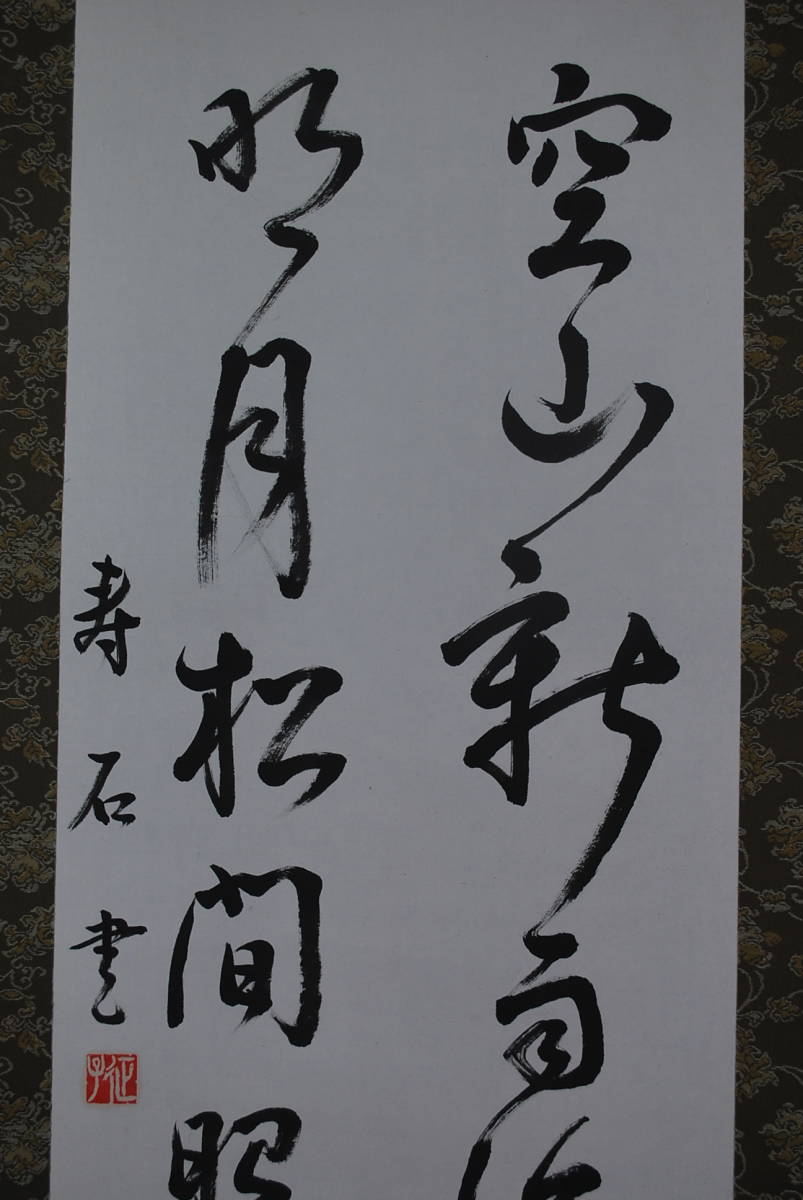 空山新雨
明月松間照
寿石書